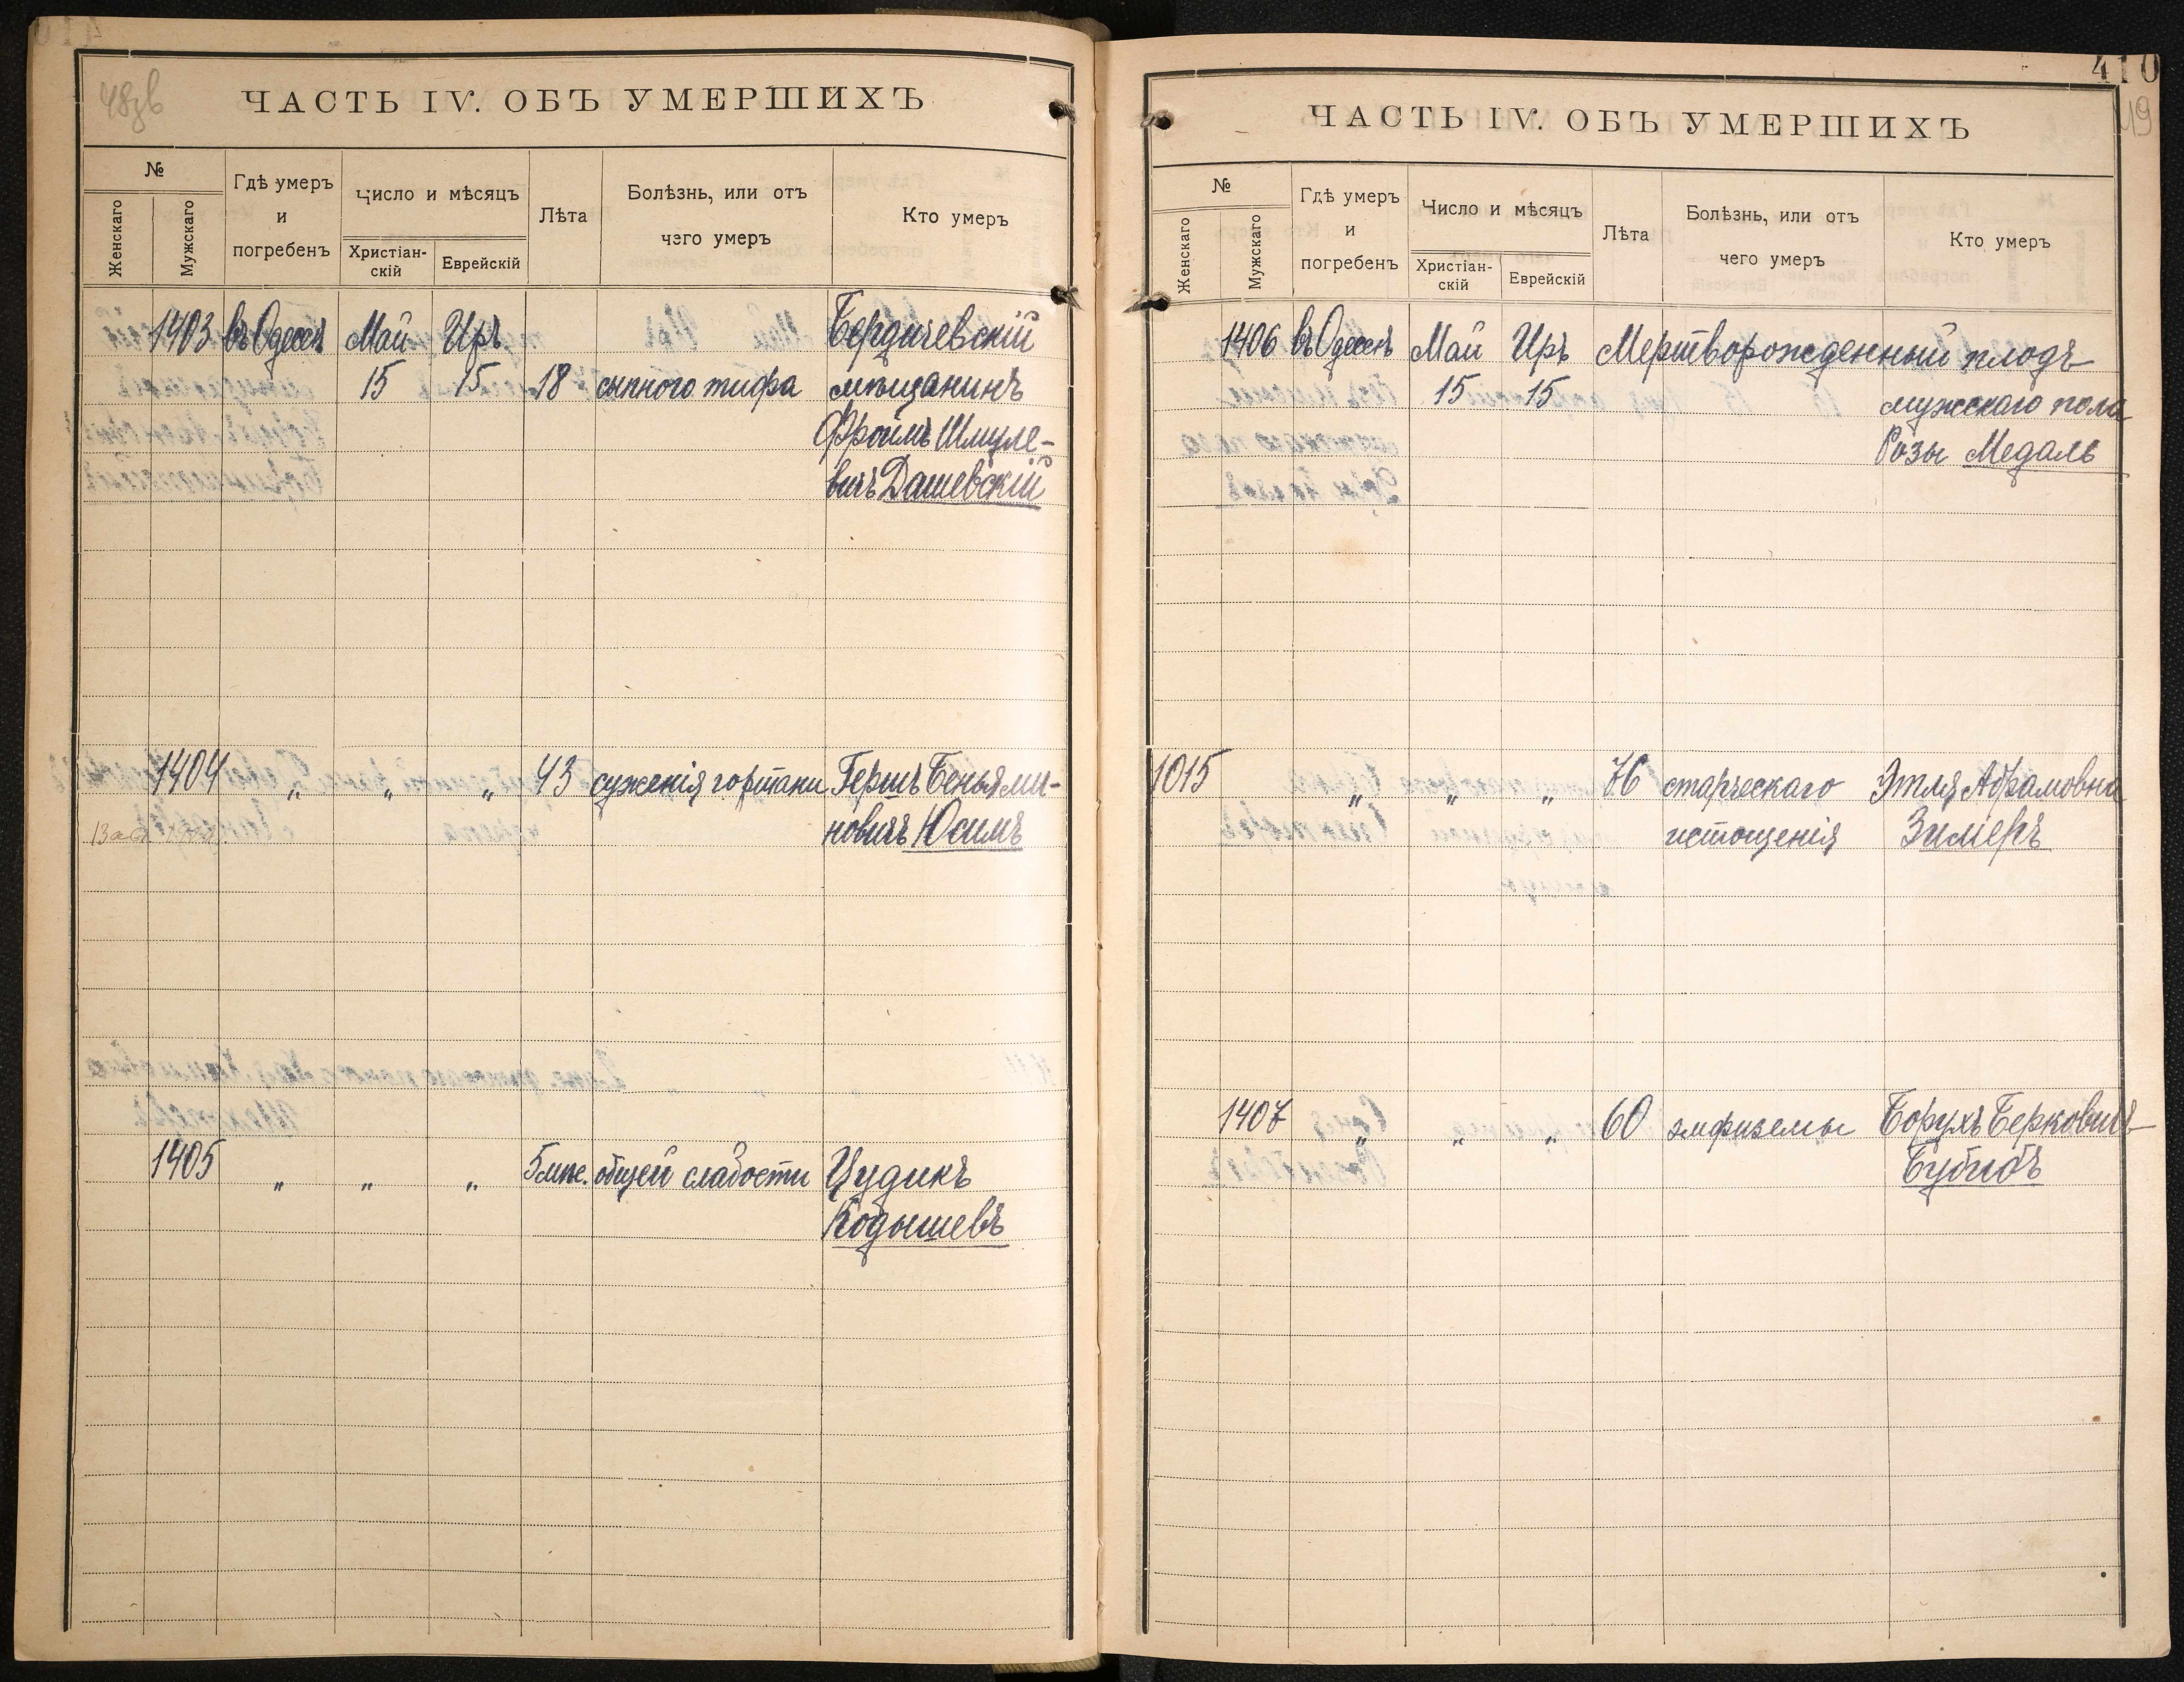 48зв
ЧАСТЬ IV. ОБЪ УМЕРШИХЪ
№
Женскаго
Мужскаго
Гдѣ умеръ
и
погребенъ
Число и мѣсяцъ
Христіан-
скій
Еврейскій
Лѣта
Болѣзнь, или отъ
чего умеръ
Кто умеръ
1403 въ Одессѣ Май Иръ Бердичевскій
15 15 18 сыпного тифа мѣщанинъ
Фроимъ Шмуле-
вичъ Дашевскій
1404 „ „ „ 43 суженія гортани Гершъ Беньями-
новичъ Юсимъ
1405 „ „ „ 5 мѣс. общей слабости Цудикъ
Кодышевъ
410
49
ЧАСТЬ IV. ОБЪ УМЕРШИХЪ
№
Женскаго
Мужскаго
Гдѣ умеръ
и
погребенъ
Число и мѣсяцъ
Христіан-
скій
Еврейскій
Лѣта
Болѣзнь, или отъ
чего умеръ
Кто умеръ
1406 въ Одессѣ Май Иръ Мертворожденный плодъ
15 15 мужскаго пола
Розы Медаль
1015 „ „ „ 76 старческаго Этля Абрамовна
истощенія Зимеръ
1407 „ „ „ 60 эмфиземы Борухъ Берковичъ
Бубисъ